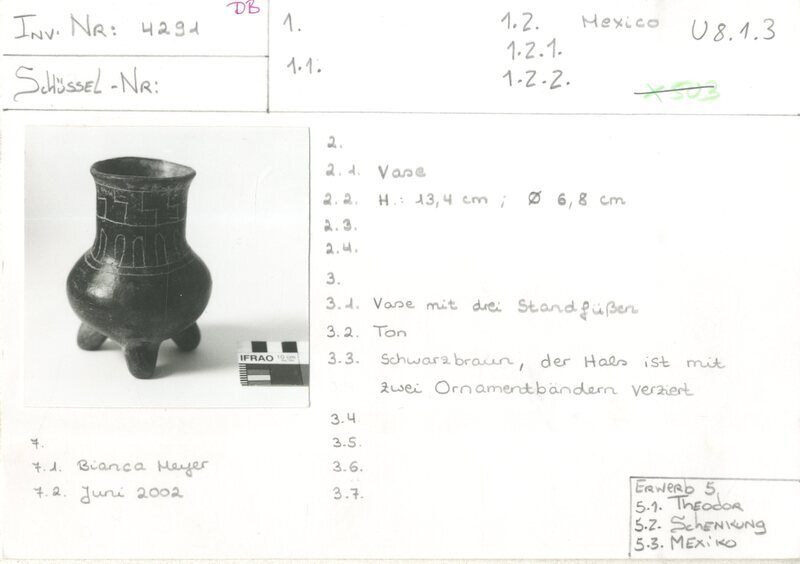 DB
INV. NR: 4291
SCHÜSSEL-NR:
1.
1.1.
1.2. Mexico
1.2.1.
1.2.2.
U8.1.3
X 503
IFRAO 10 cm
2.
2.1. Vase
2.2. H.: 13,4 cm ; Ø 6,8 cm
2.3.
2.4.
3.
3.1. Vase mit drei Standfüßen
3.2. Ton
3.3. Schwarzbraun, der Hals ist mit
zwei Ornamentbändern verziert
3.4
3.5.
3.6.
3.7.
7.
7.1. Bianca Meyer
7.2. Juni 2002
ERWERB 5
5.1. THEODOR
5.2. SCHENKUNG
5.3. MEXIKO